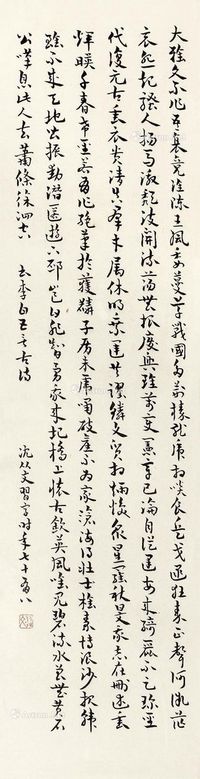 大雅久不作吾衰竟誰陳王風委蔓草戰國多荊榛龍虎相啖食兵戈逮狂秦正聲何微茫
哀怨起騷人揚馬激頹波開流蕩無垠廢興雖萬變憲章亦已淪自從建安來綺麗不足珍聖
代復元古垂衣貴清真群才屬休明乘運共躍鱗文質相炳煥衆星羅秋旻我志在刪述垂
輝映千春希聖如有立絕筆於獲麟子房未虎嘯破產不為家滄海得壯士椎秦博浪沙報韓
雖不成天地皆振動潛匿遊下邳豈曰非智勇我來圯橋上懷古欽英風唯見碧流水曾無黃石
公嘆息此人去蕭條徐泗空 李白五言古詩
沈從文習字時年七十有八